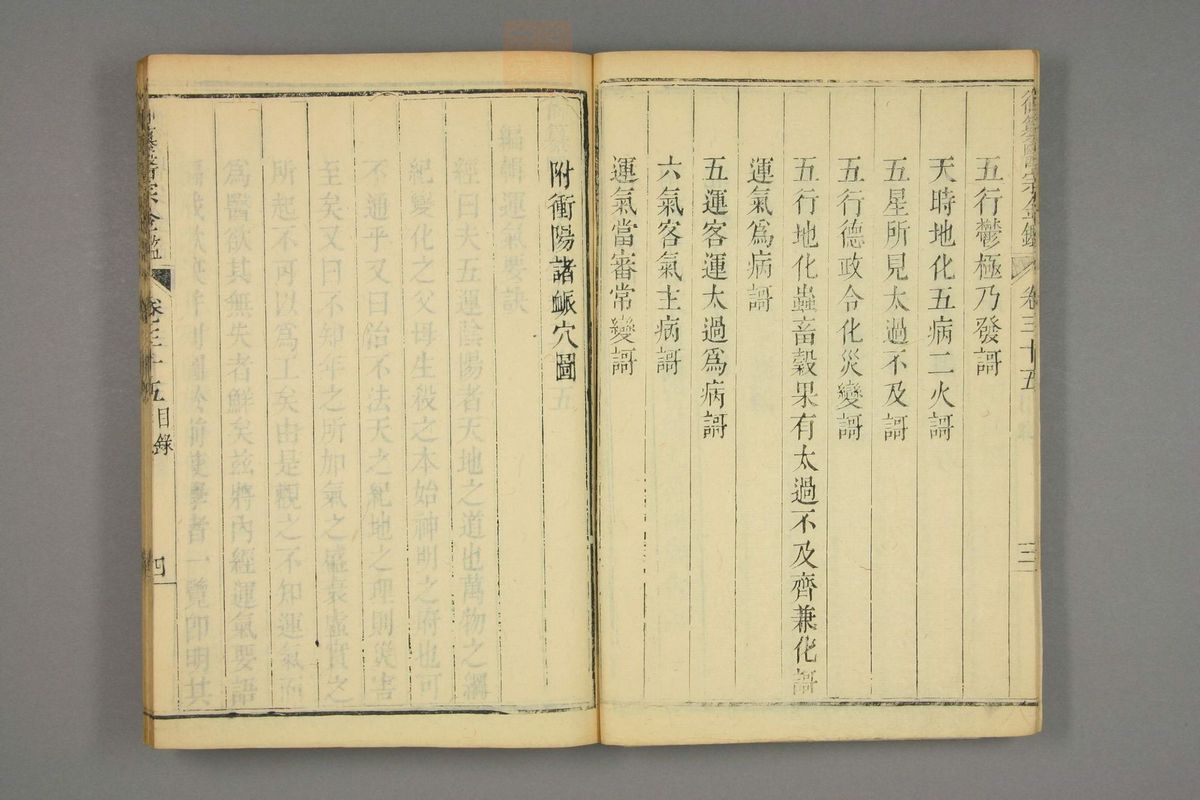 御纂醫宗金鑑 卷三十五 三
五行鬱極乃發謌
天時地化五病二火謌
五星所見太過不及謌
五行德政令化災變謌
五行地化蟲畜穀果有太過不及齊兼化謌
運氣爲病謌
五運客運太過爲病謌
六氣客氣主病謌
運氣當審常變謌
附衝陽諸䘑穴圖
編輯運氣要訣
經曰夫五運陰陽者天地之道也萬物之綱
紀變化之父母生殺之本始神明之府也可
不通乎又曰治不法天之紀地之理則災害
至矣又曰不知年之所加氣之盛衰虛實之
所起不可以爲工矣由是觀之不知運氣而
爲醫欲其無失者鮮矣茲將內經運氣要語
學者一覽即明其
御纂醫宗金鑑 卷三十五 目錄 四